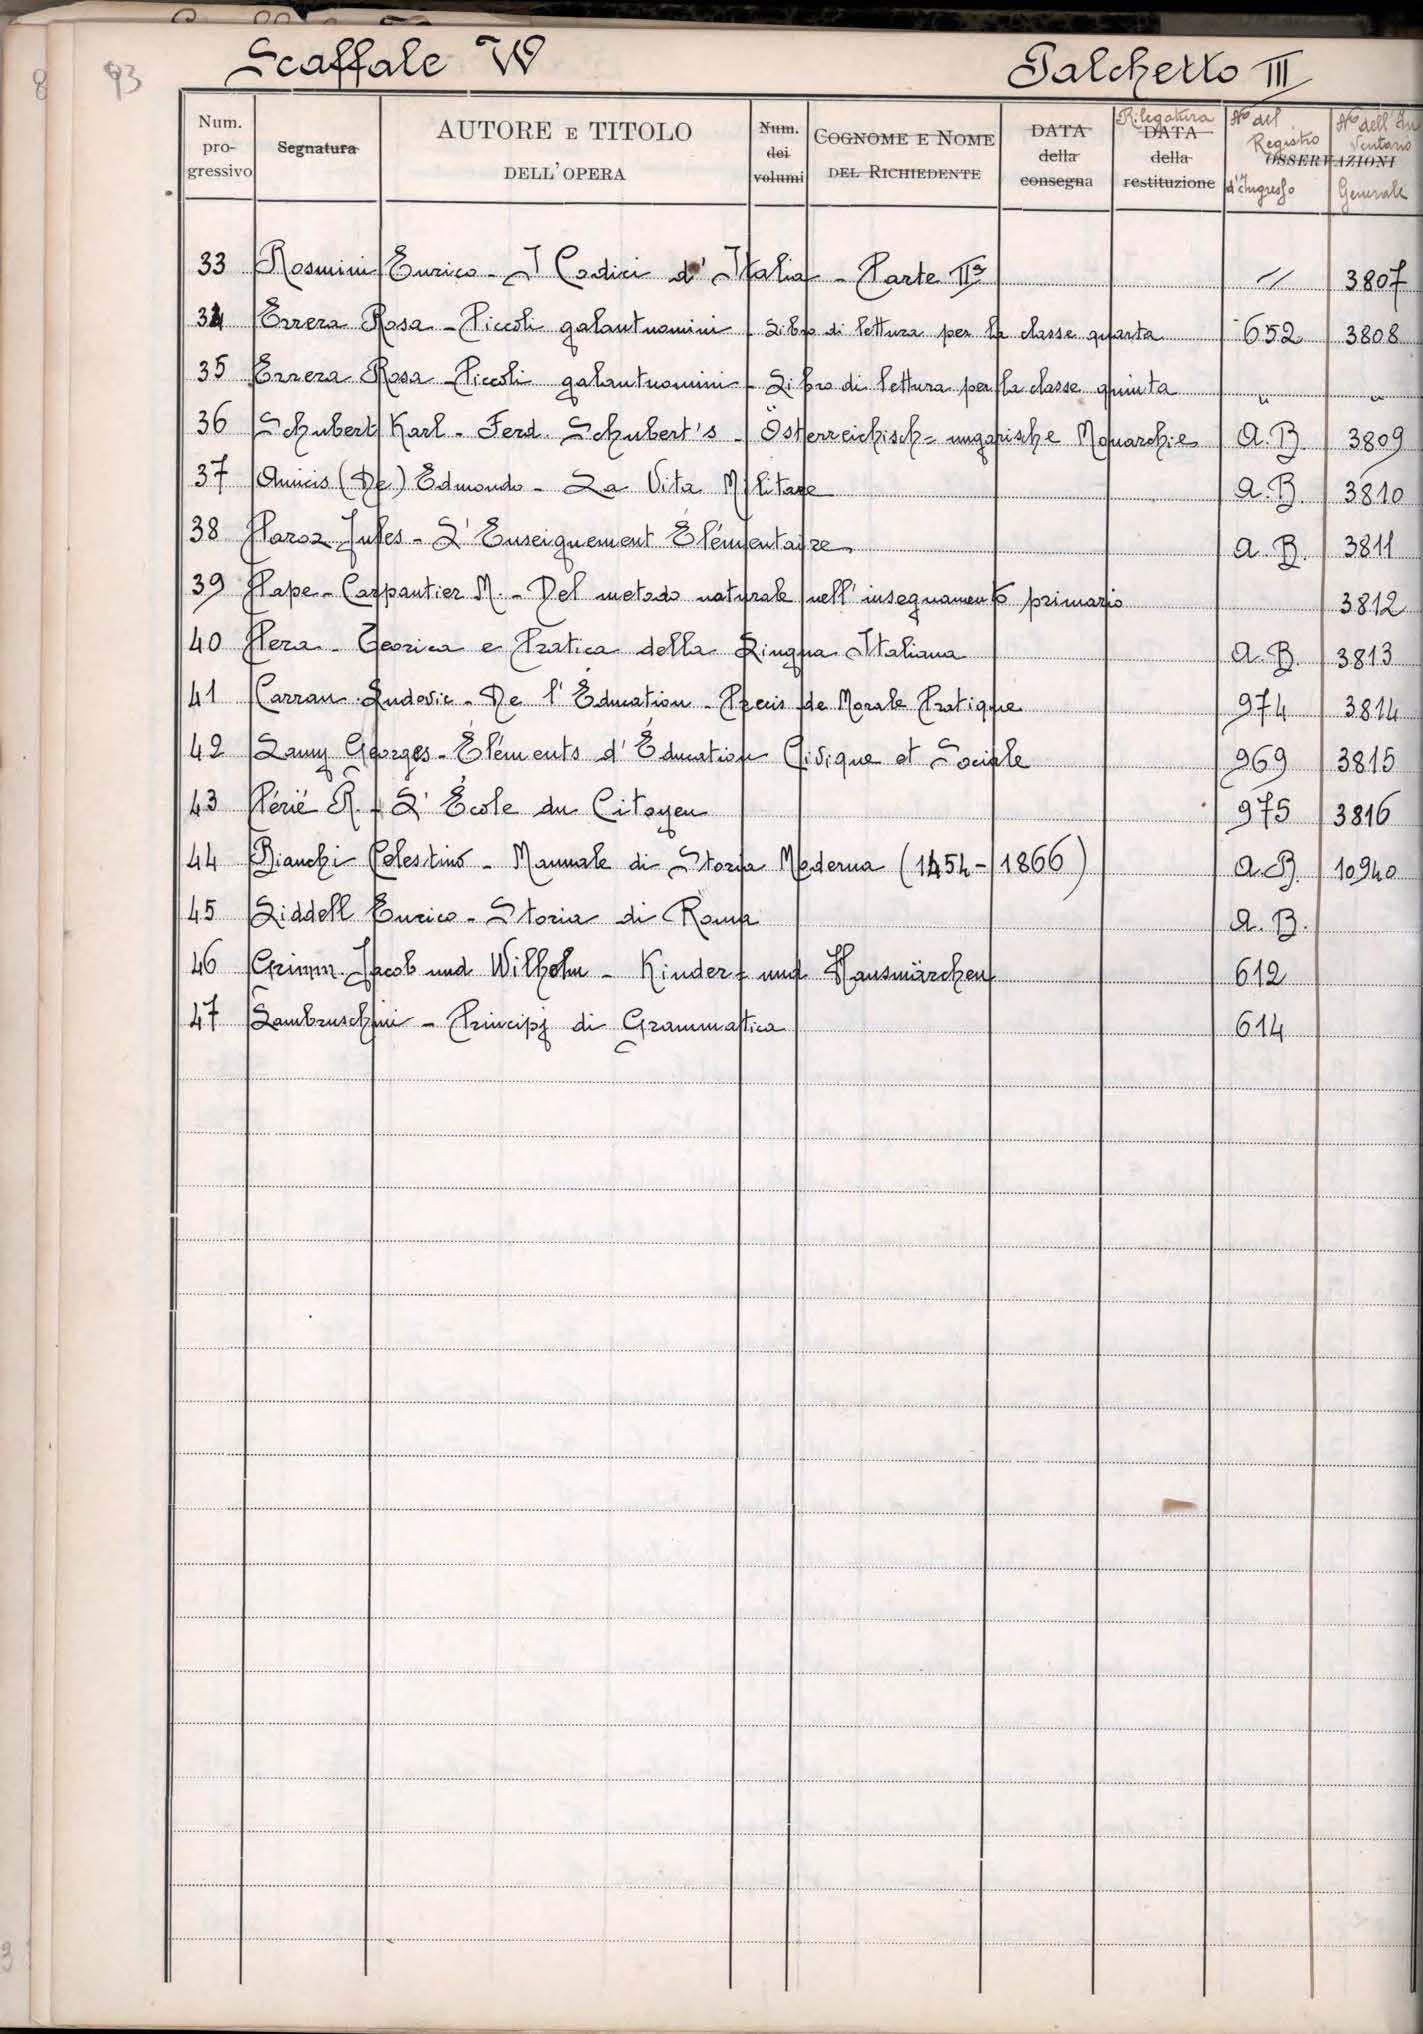 93
Scaffale W Palchetto III
Num. progressivo Segnatura AUTORE E TITOLO DELL'OPERA Num. dei volumi COGNOME E NOME DEL RICHIEDENTE DATA della consegna Rilegatura DATA della restituzione OSSERVAZIONI No del Registro d'Ingresso No dell'Inventario Generale
33 Rosmini Enrico - I Codici d'Italia - Parte IIa // 3807
34 Errera Rosa - Piccoli galantuomini - Libro di lettura per la classe quarta 652 3808
35 Errera Rosa - Piccoli galantuomini - Libro di lettura per la classe quinta " "
36 Schubert Karl - Ferd. Schubert's - Österreichisch= ungarische Monarchie A. B. 3809
37 Amicis (De) Edmondo - La Vita Militare A. B. 3810
38 Paroz Jules - L'Enseignement Élémentaire A. B. 3811
39 Pape - Carpantier M. - Del metodo naturale nell'insegnamento primario 3812
40 Pera - Teorica e Pratica della Lingua Italiana A. B. 3813
41 Carrau Ludovic - De l'Éducation - Precis de Morale Pratique 974 3814
42 Lamy Georges - Éléments d'Éducation Civique et Sociale 969 3815
43 Périé R. - L'École du Citoyen 975 3816
44 Bianchi Celestino - Manuale di Storia Moderna (1454-1866) A. B. 10940
45 Liddell Enrico - Storia di Roma A. B.
46 Grimm Jacob und Wilhelm - Kinder= und Hausmärchen 612
47 Lambruschini - Principj di Grammatica 614